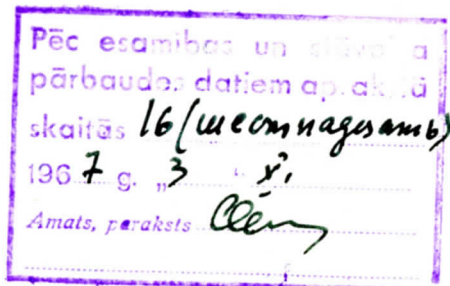 Pēc esamibas un stāvokļa
pārbaudes datiem aprakstā
skaitās 16 (шестнадцать)
1967 g. „3 “ X.
Amats, paraksts